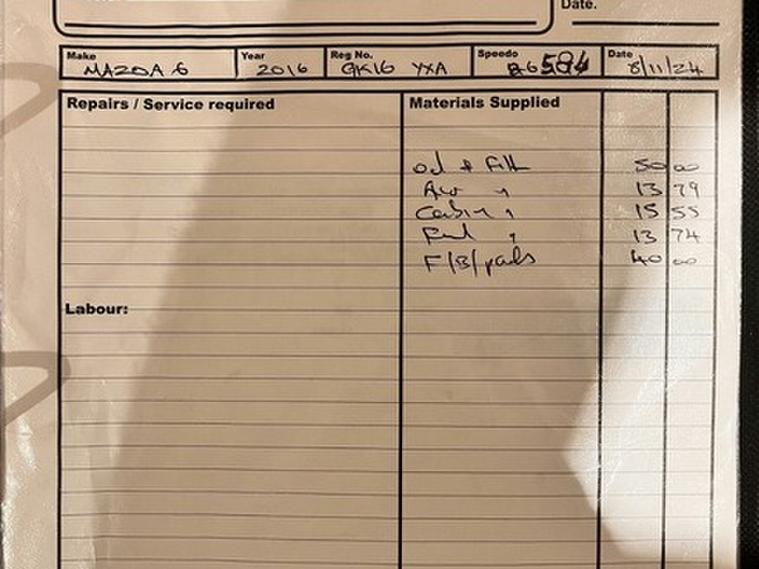 Date.
Make Year Reg No. Speedo Date
MAZDA 6 2016 GK16 YXA 8/11/24
Repairs / Service required Materials Supplied
Oil & Filt 50 00
Air " 13 79
Cabin " 15 55
Fuel " 13 74
F/B/pads 40 00
Labour: